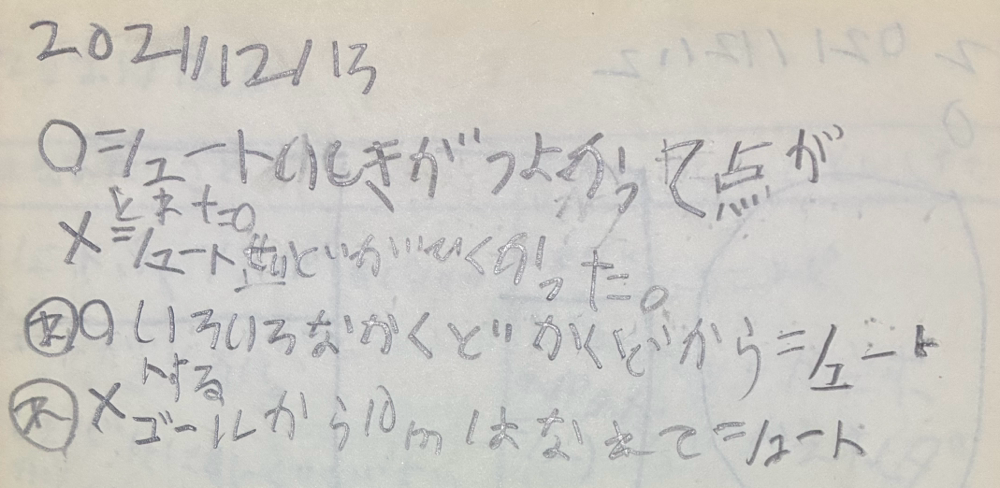 2021/12/13
○=シュートいしきがつよかって点が
とまた。
×=シュート せいどがひくかった。
㋭○いろいろなかくどかくどから=シュート
トする
㋭×ゴールから10mはなれて=シュート